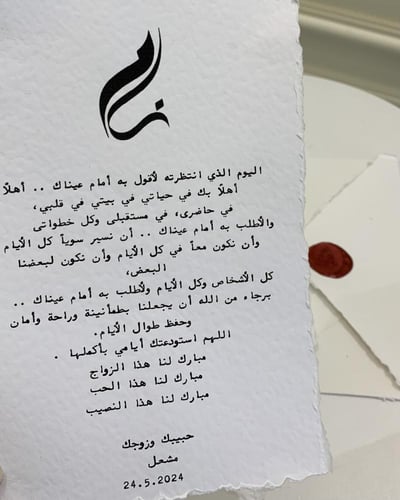 اليوم الذي انتظرته لأقول به أمام عيناك .. أهلاً
أهلاً بك في حياتي في بيتي في قلبي،
في حاضري، في مستقبلي وكل خطواتي
ولأطلب به أمام عيناك .. أن نسير سوياً كل الأيام
وأن نكون معاً في كل الأيام وأن نكون لبعضنا
البعض،
كل الأشخاص وكل الأيام ولأطلب به أمام عيناك ..
برجاء من الله أن يجعلنا بطمأنينة وراحة وأمان
وحفظ طوال الأيام.
اللهم استودعتك أيامي بأكملها .
مبارك لنا هذا الزواج
مبارك لنا هذا الحب
مبارك لنا هذا النصيب
حبيبك وزوجك
مشعل
24.5.2024